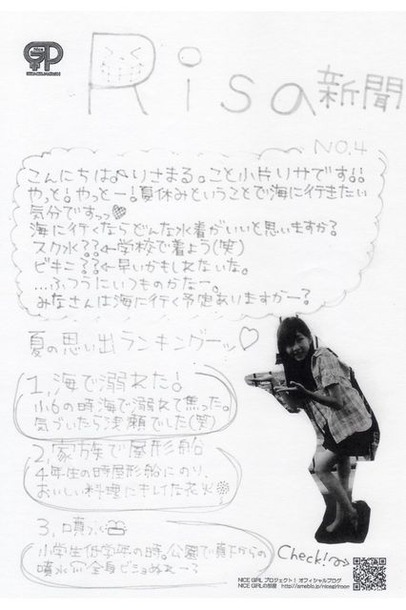 Nice
GP
Risa新聞
NO.4
こんにちは♪りさまる。こと小片リサです!!
やっと!やっとー!夏休みということで海に行きたい
気分ですっっ♡
海に行くならどんな水着がいいと思いますか?
スク水??←学校で着よう(笑)
ビキニ??←早いかもしれないな。
...ふつうにいつものかなー。
みなさんは海に行く予定ありますかー?
夏の思い出ランキングーッ♡
1,海で溺れた!
小6の時海で溺れて焦った。
気づいたら浅瀬でした(笑)
2,家族で屋形船
4年生の時屋形船にのり、
おいしい料理にキレイな花火
3,噴水
小学生低学年の時。公園で真下からの
噴水で全身ビショぬれー?
Check!
NICE GIRL プロジェクト! オフィシャルブログ
NICE GIRLの部屋 http://ameblo.jp/nicegirlroom